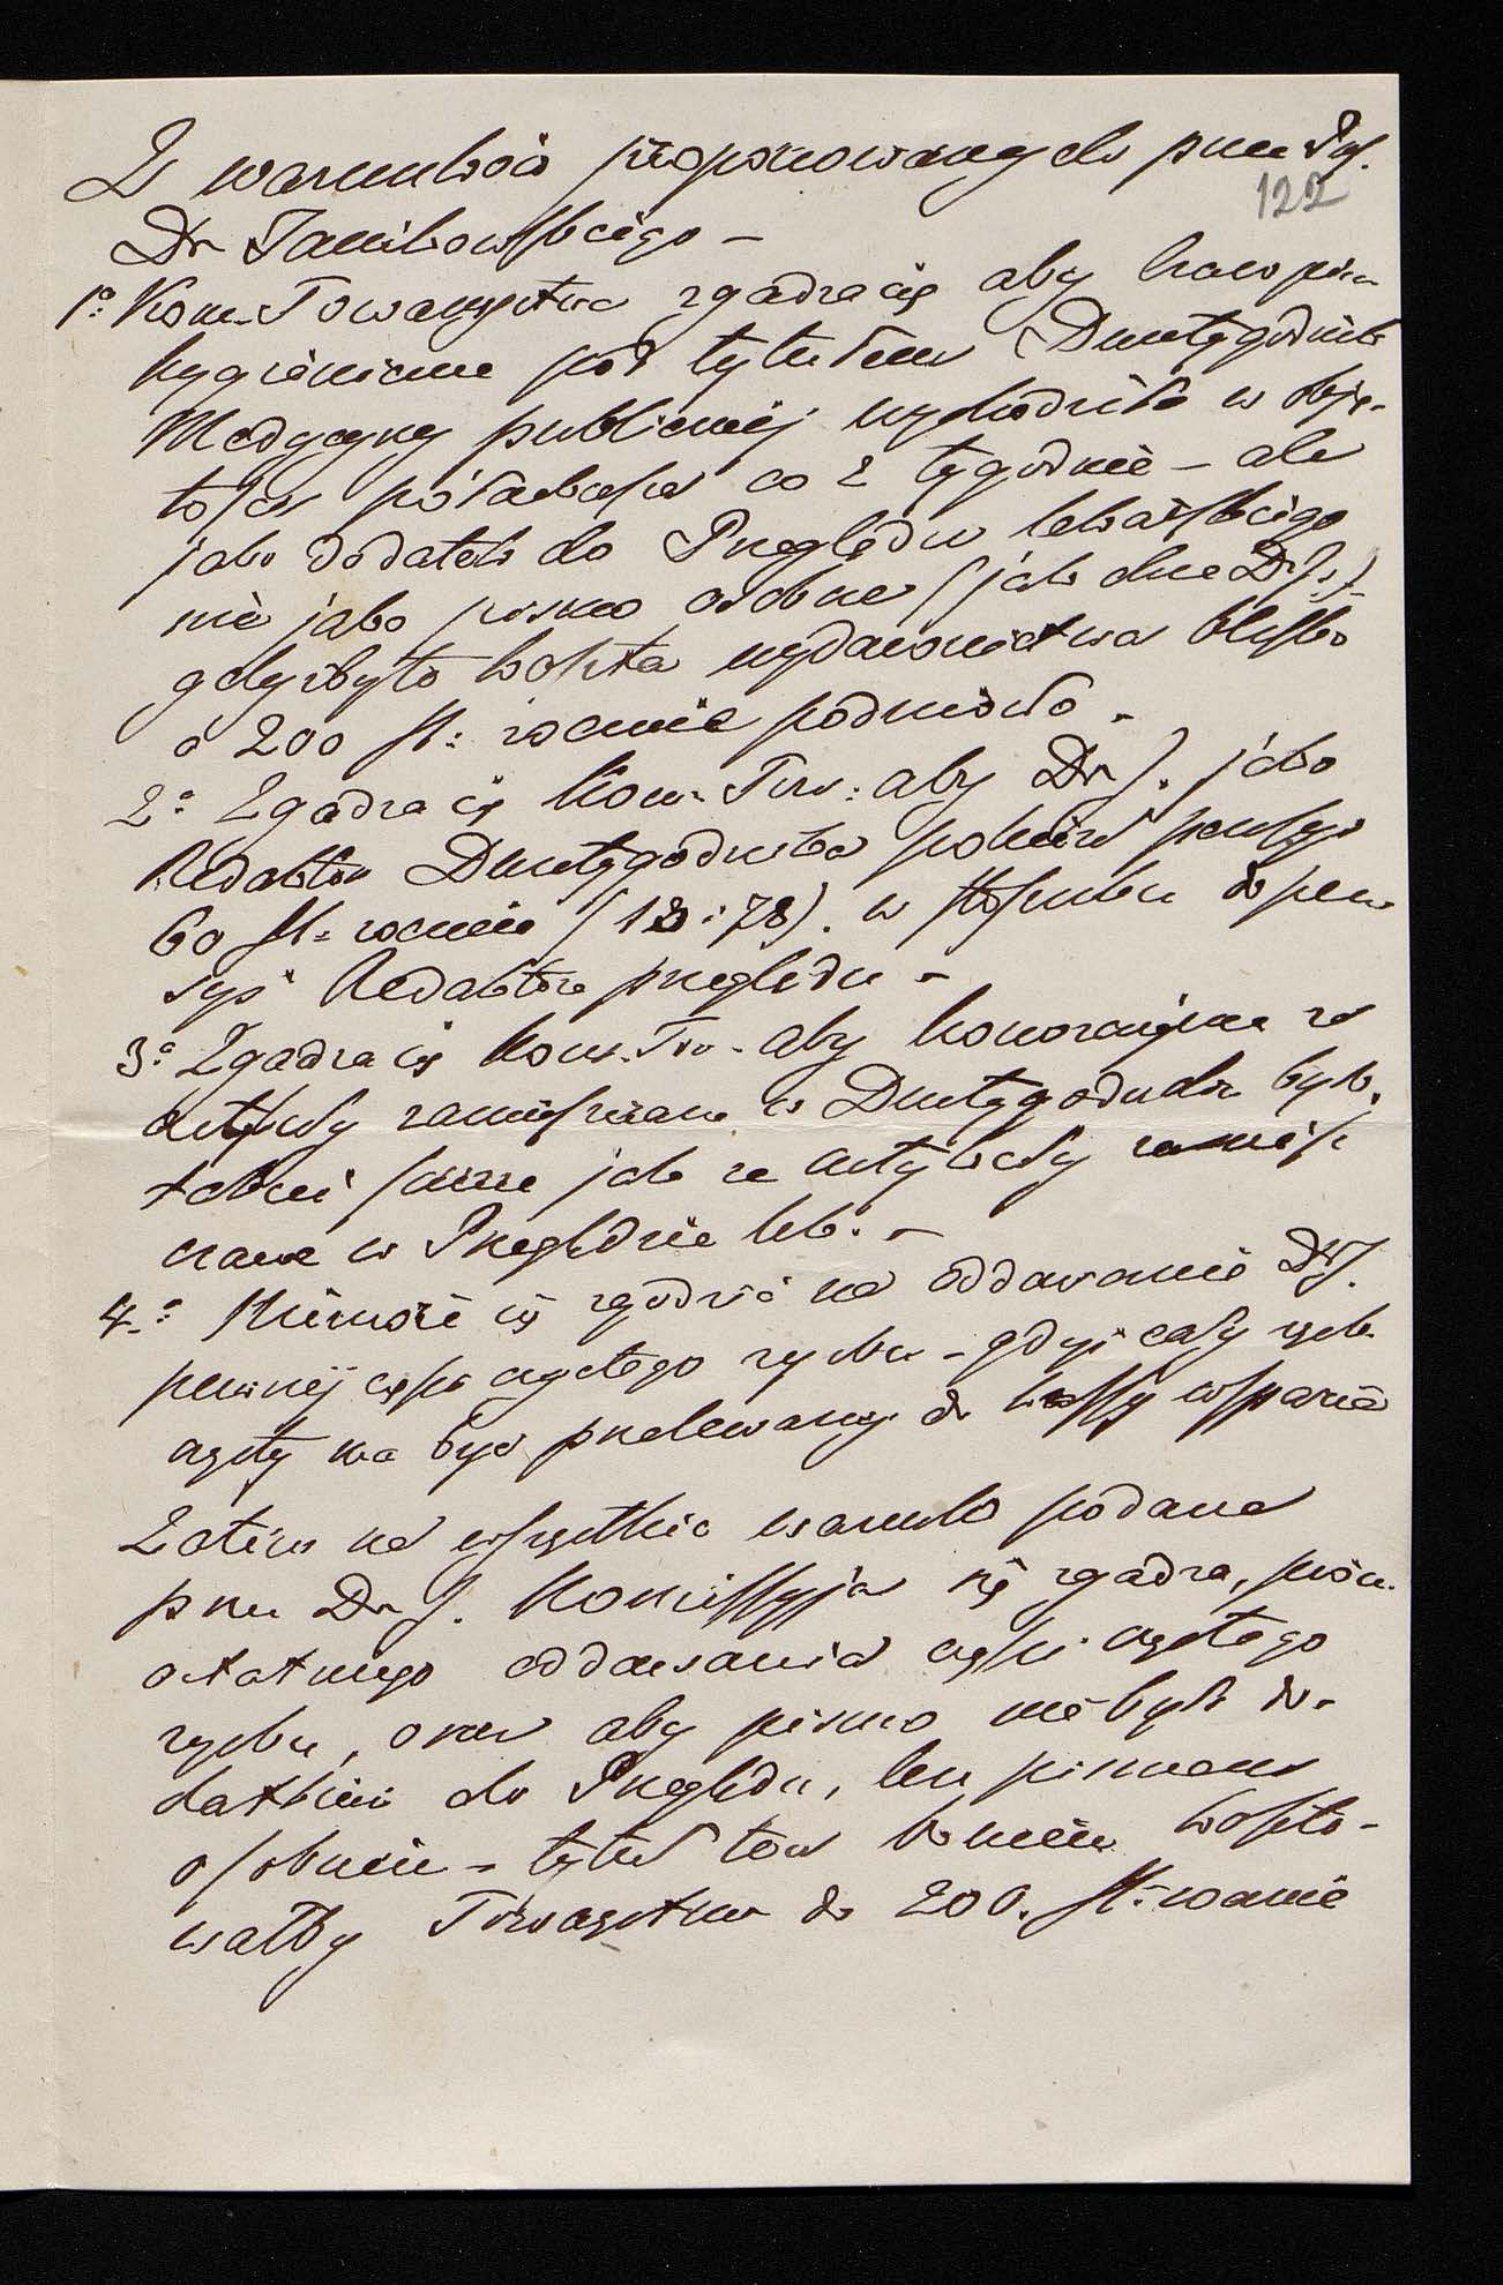 Z warunków proponowanych przez Prof.
122
Dr Janikowskiego –
1o: Kom. Towarzystwa zgadza się aby czasopismo
hygieniczne pod tytułem Dwutygodnik
Medycyny publicznej wychodziło w obję-
tości półarkusza co 2 tygodnie – ale
jako dodatek do Przeglądu lekarskiego
nie jako pismo osobne (jak chce Dr J.)
gdyż by to koszta wydawnictwa blisko
o 200 fl: rocznie podniosło.
2o Zgadza się Kom. Tow: aby Dr J. jako
Redaktor Dwutygodnika pobierał pensyę
60 fl: rocznie (13:78). w stosunku do pen-
syi Redaktora przeglądu –
3o Zgadza się Kom. Tow. aby honoraryjum za
artykuły zamieszczane w Dwutygodniku było
takie same jak za artykuły zamiesz
czane w Przeglądzie lek. –
4.o Nie może się zgodzić na oddawanie Dr J.
pewnej części czystego zysku – gdyż cały zysk
czysty ma być przelewany do kassy wsparcia
Zatém na wszystkie warunki podane
przez Dr J. Komissyja się zgadza, prócz
ostatniego oddawania części czystego
zysku, oraz aby pismo nie było do-
datkiem do Przeglądu, lecz pismem
osobnem – tytuł ten bowiem koszto-
wałby Towarzystwo do 200. fl: rocznie